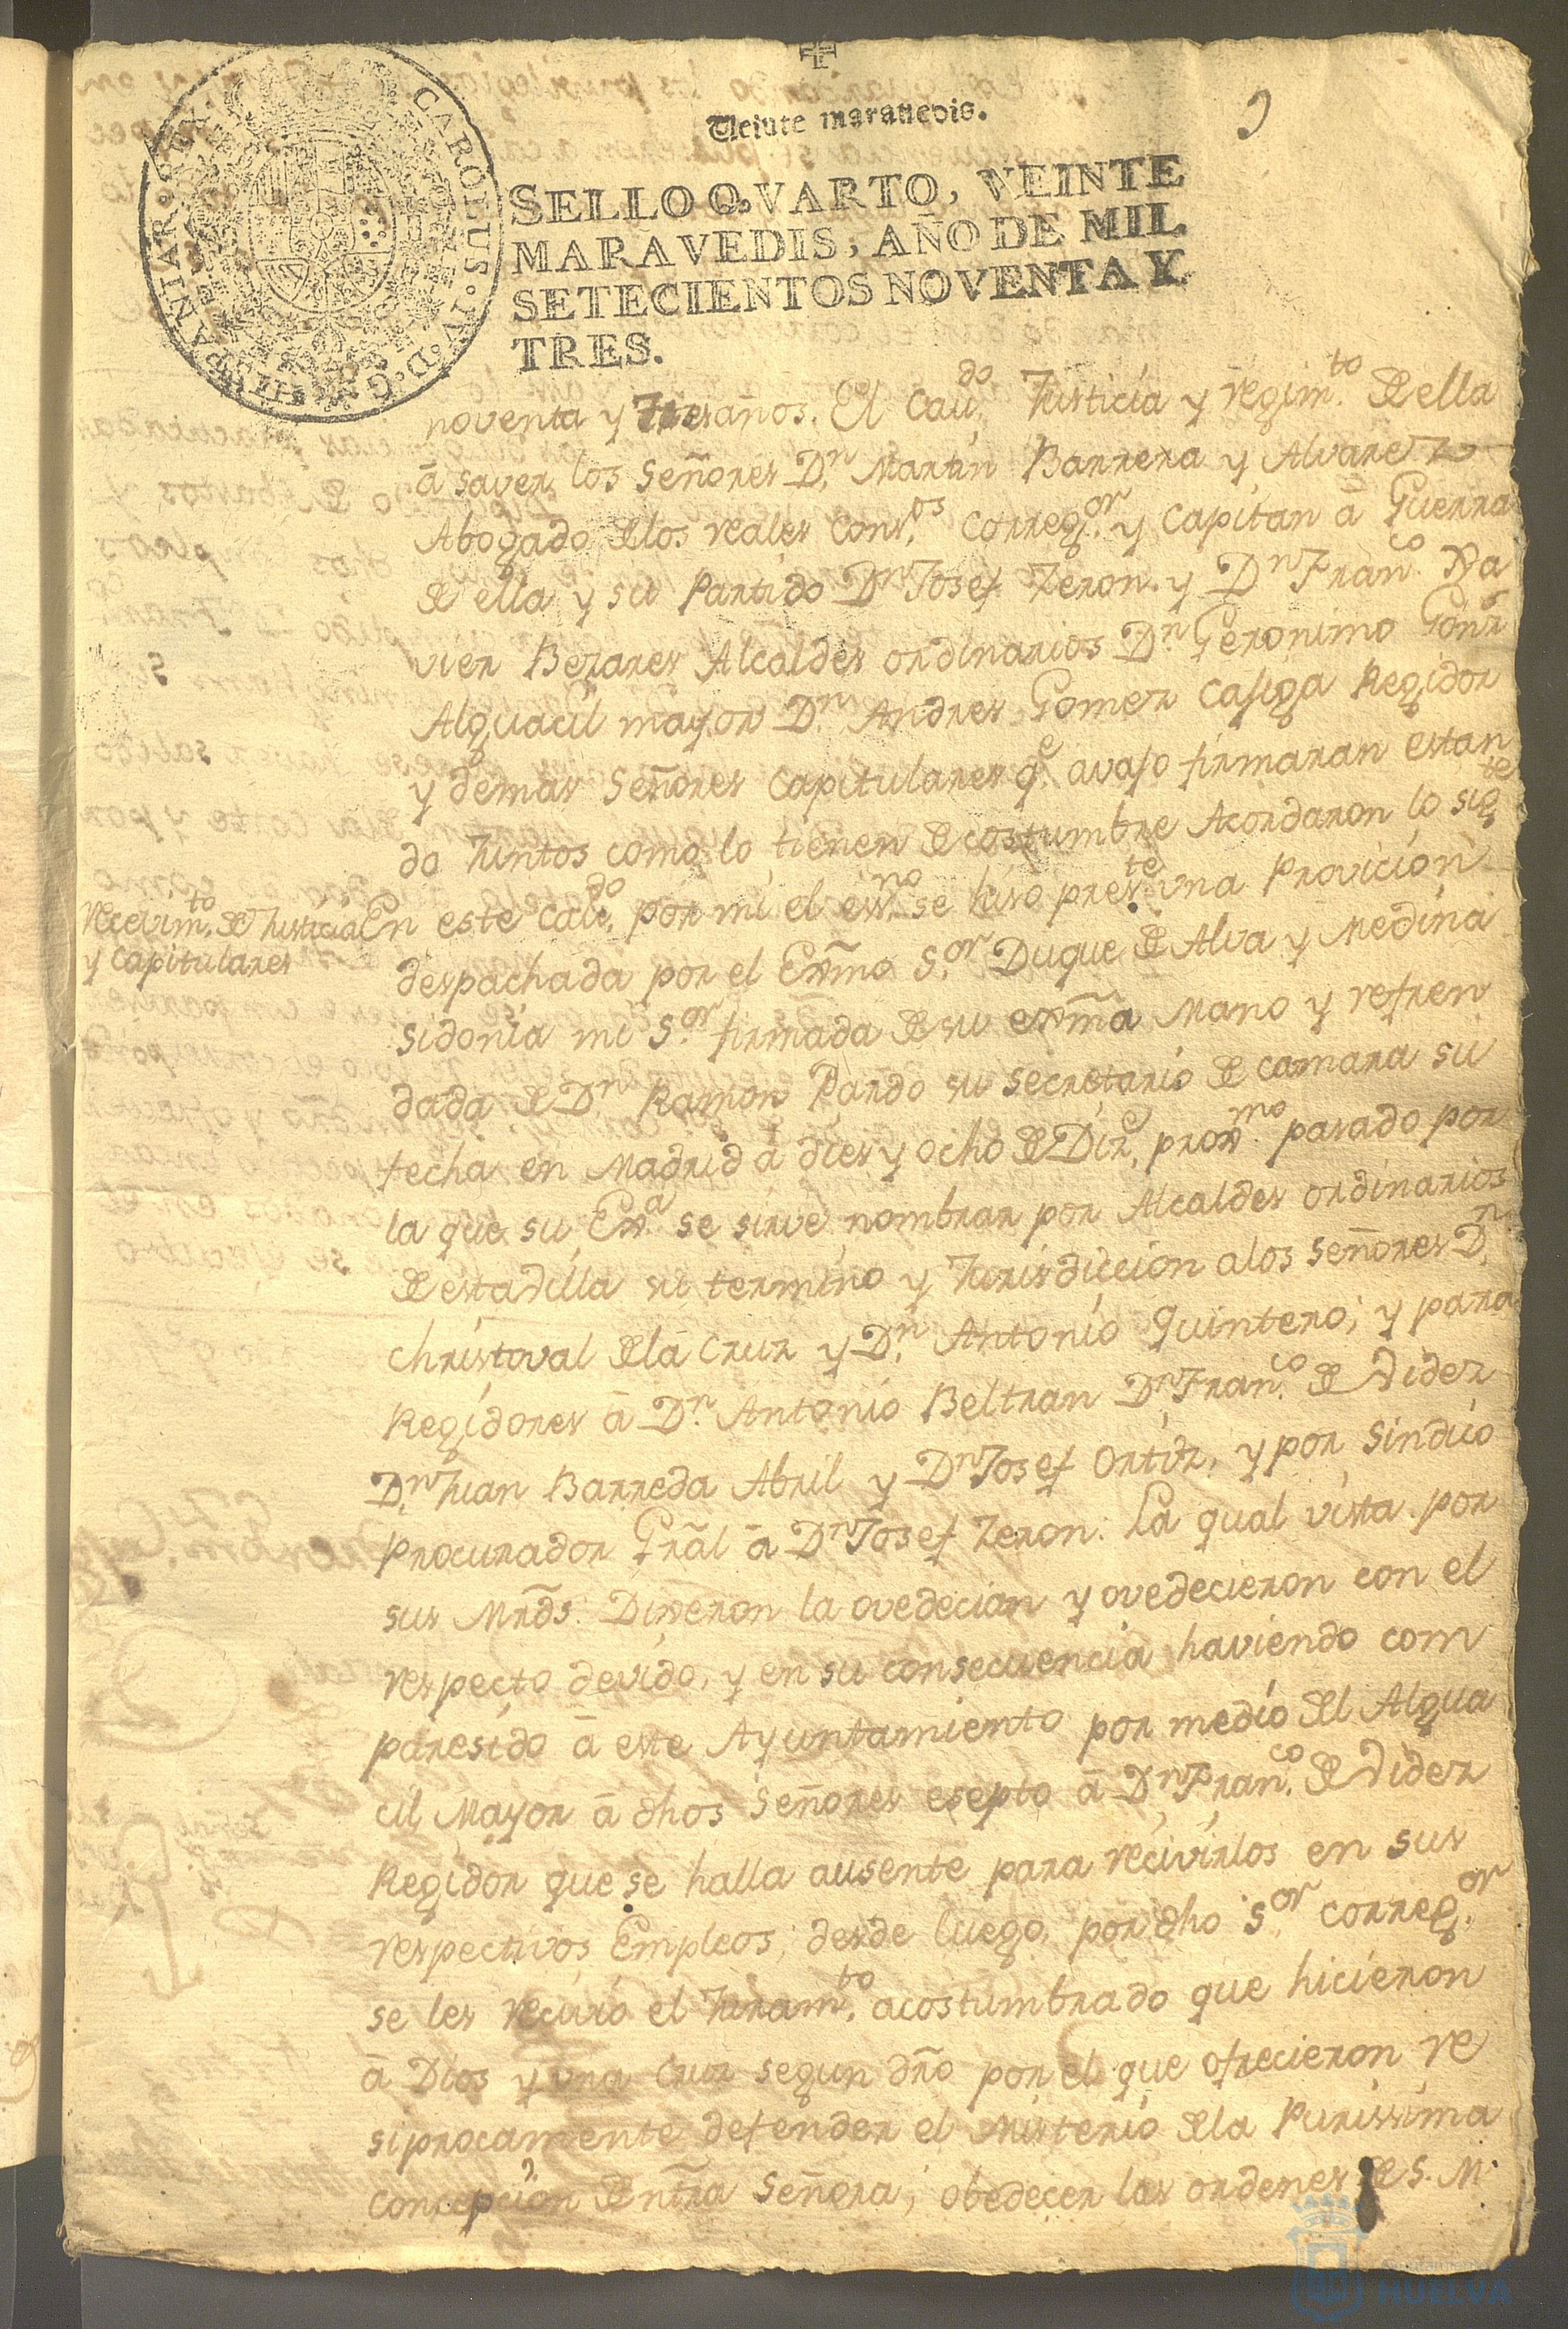 Veinte maravedis.
SELLO QVARTO, VEINTE
MARAVEDIS, AÑO DE MIL
SETECIENTOS NOVENTA Y
TRES.
CAROLUS·IV·D·G·HISPANIAR·REX
noventa y tres años. El Cav.do Justicia y regim.to de ella
á saver los Señores D.n Martin Barrera y Alvarez
Abogado de los reales Cons.os Correg.or y Capitan á Guerra
de ella y su Partido D.n Josef Zeron y D.n Fran.co Xa
vier Bezares Alcaldes ordinarios D.n Geronimo Gonz
Alguacil mayor D.n Andres Gomez Casiga Regidor
y demas Señores Capitulares q.e avajo firmaran estan
do Juntos como lo tienen de costumbre Acordaron lo sig.te
Recevim.to de Justicia
y Capitulares
En este Cav.do por mi el ess.no se hiso pres.te una Provicion
despachada por el Exmõ S.or Duque de Alva y Medina
Sidonia mi S.or firmada de su exmã Mano y refren
dada de D.n Ramon Pardo su Secretario de Camara su
fecha en Madrid á dies y ocho de Diz.e prox.mo pasado por
la que su Ex.a se sirve nombrar por Alcaldes ordinarios
de esta dilla su termino y Jurisdiccion a los Señores D.n
Christoval de la Cruz y D.n Antonio Quintero; y para
Regidores á D.n Antonio Beltran D.n Fran.co de Videz
D.n Juan Barreda Abril y D.n Josef Ortiz, y por Sindico
Procurador Grãl á D.n Josef Zeron. La qual vista por
sus Mrds. Dixeron la ovedecian y ovedecieron con el
respecto devido, y en su consecuencia haviendo com
paresido á este Ayuntamiento por medio del Algua
cil Mayor á dhos Señores esepto á D.n Fran.co de Videz
Regidor que se halla ausente para recivirlos en sus
respectivos Empleos; desde luego por dho S.or Correg.or
se les recivio el Juram.to acostumbrado que hicieron
á Dios y una Cruz segun dro por el que ofrecieron re
siprocamente defender el Misterio de la Purissima
Concepcion de ntra Señora; obedecer las ordenes de S. M.
HUELVA